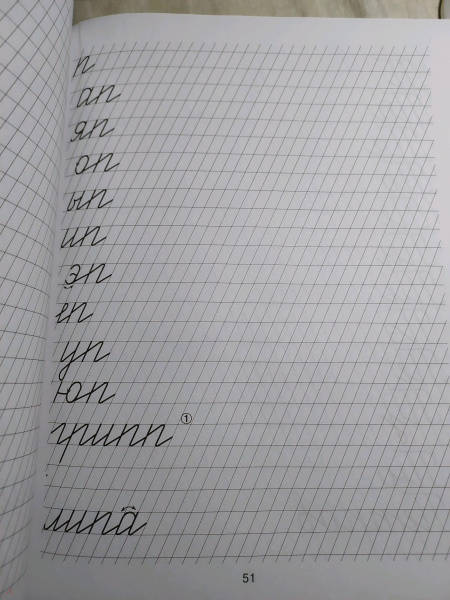 п
ап
яп
оп
ып
ип
эп
еп
уп
юп
грипп ①
липа
51